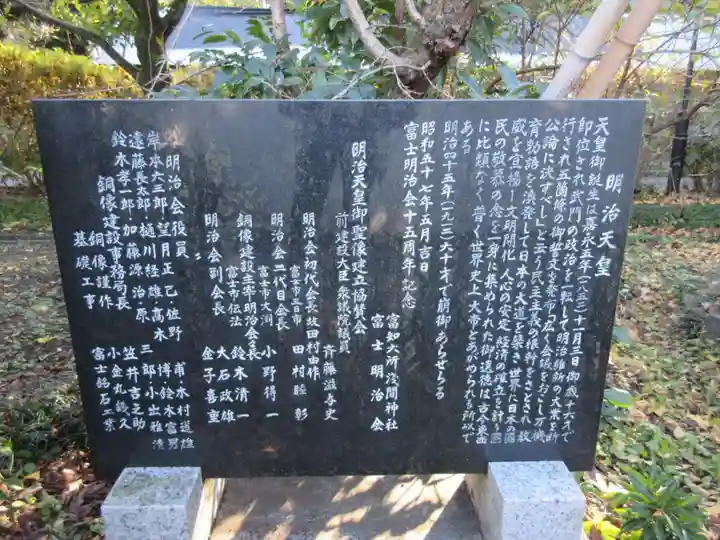 明治天皇
天皇御誕生は嘉永五年(一八五二)十一月三日御歳十六才で
即位され武門の政治を一転して明治維新の大業を断
行され五箇條の御誓文を発布「広く会議をおこし万機
公論に決すべし」と云う民主主義の根幹をさとされ教
育勅語を渙発して日本の大道を築き世界に日本の国
威を宣揚し文明開化 人心の安定 経済の確立を計り国
民の敬慕の念を一身に集められた御遺徳は古今東西
に比類なく普く世界史上「大帝」とあがめられる所以で
ある
明治四十五年(一九一二)六十才で崩御あらせらる
昭和五十七年五月吉日
富士明治会十五周年記念
富知六所浅間神社
富士明治会
明治天皇御聖像建立協賛会
前建設大臣衆議院議員 斉藤滋与史
明治会初代会長故田村由作
富士市三日市 田村睦彰
明治会二代目会長
富士市大渕 小野得一
銅像建設主幹明治会会長
富士市伝法 鈴木清一
明治会副会長 大石政雄
〃 金子喜重
明治会役員
岸本六三郎 望月正己 佐野 甫 木村道雄
遠藤長太郎 樋川経雄 高木 博 鈴木富男
鈴木孝一郎 加藤源治 原 三郎 小出雅清
銅像建設事務局長 笠井吉之助
銅像謹作 小金丸幾久
基礎工事 富士銘石工業